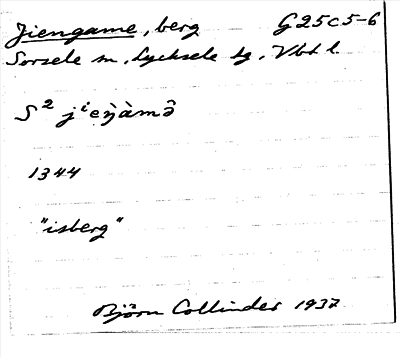 Jiengame, berg G25c5-6
Sorsele sn, Lycksele tg, Vbtl.
S² jⁱeŋ̀àmə̂
1344
"isberg"
Björn Collinder 1937